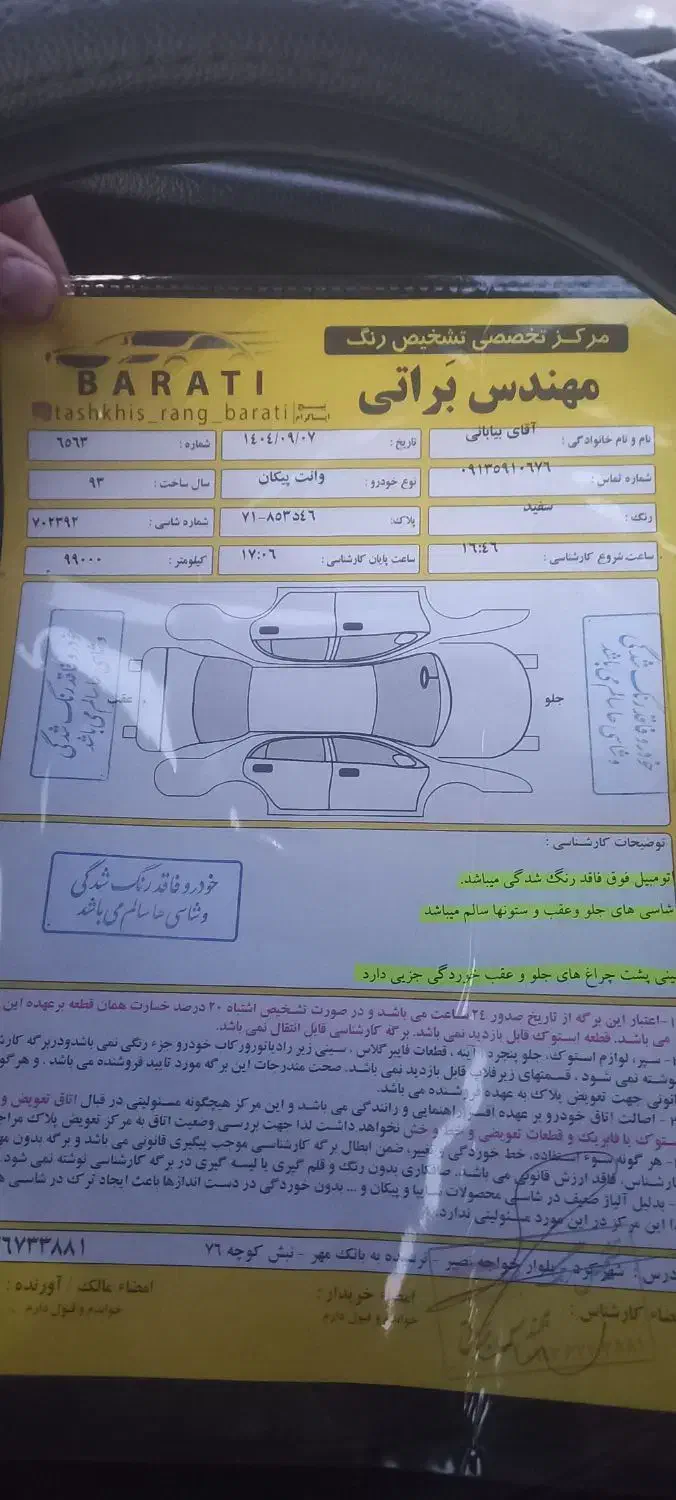 مرکز تخصصی تشخیص رنگ
BARATI
مهندس بَراتی
tashkhis_rang_barati پیج اینستاگرام
نام و نام خانوادگی : آقای بیابانی
تاریخ : ۱۴۰۴/۰۹/۰۷
شماره : ۶۵۶۳
شماره تماس : ۰۹۱۳۵۹۱۰۶۷۶
نوع خودرو : وانت پیکان
سال ساخت : ۹۳
رنگ : سفید
پلاک: ۷۱-۸۵۳د۴۶
شماره شاسی : ۷۰۲۳۹۲
ساعت شروع کارشناسی : ۱۶:۴۶
ساعت پایان کارشناسی : ۱۷:۰۶
کیلومتر : ۹۹۰۰۰
جلو
عقب
خودرو فاقد رنگ شدگی
و شاسی ها سالم می باشد
خودرو فاقد رنگ شدگی
و شاسی ها سالم می باشد
توضیحات کارشناسی :
تومبیل فوق فاقد رنگ شدگی میباشد.
شاسی های جلو وعقب و ستونها سالم میباشد
خودرو فاقد رنگ شدگی
و شاسی ها سالم می باشد
ینی پشت چراغ های جلو و عقب خوردگی جزیی دارد
۱-اعتبار این برگه از تاریخ صدور ۲۴ ساعت می باشد و در صورت تشخیص اشتباه ۲۰ درصد خسارت همان قطعه برعهده این
می باشد. قطعه استوک قابل بازدید نمی باشد. برگه کارشناسی قابل انتقال نمی باشد.
سپر، لوازم استوک، جلو پنجره، آینه ، قطعات فایبرگلاس ، سینی زیر رادیاتورورکاب خودرو جزء رنگی نمی باشدودربرگه کارش
نوشته نمی شود . قسمتهای زیرقلاب قابل بازدید نمی باشد. صحت مندرجات این برگه مورد تایید فروشنده می باشد . و هرگو
انونی جهت تعویض پلاک به عهده فروشنده می باشد.
اصالت اتاق خودرو بر عهده افسر راهنمایی و رانندگی می باشد و این مرکز هیچگونه مسئولیتی در قبال اتاق تعویض و
ستوک یا فابریک و قطعات تعویضی و خط و خش نخواهد داشت لذا جهت بررسی وضعیت اتاق به مرکز تعویض پلاک مراج
هر گونه سوء استفاده، خط خوردگی و تغییر، ضمن ابطال برگه کارشناسی موجب پیگیری قانونی می باشد و برگه بدون مه
ارشناس، فاقد ارزش قانونی می باشد. صافکاری بدون رنگ و قلم گیری یا لیسه گیری در برگه کارشناسی نوشته نمی شود.
- بدلیل آلیاژ ضعیف در شاسی محصولات سایپا و پیکان و ... بدون خوردگی در دست اندازها باعث ایجاد ترک در شاسی
ذا این مرکز در این مورد مسئولیتی ندارد.
درس : شهرکرد - بلوار خواجه نصیر - نرسیده به بانک مهر - نبش کوچه ۷۶
۶۷۳۳۸۸۱
ضاء کارشناس :
امضاء خریدار :
خواندم و قبول دارم
امضاء مالک / آورنده :
خواندم و قبول دارم